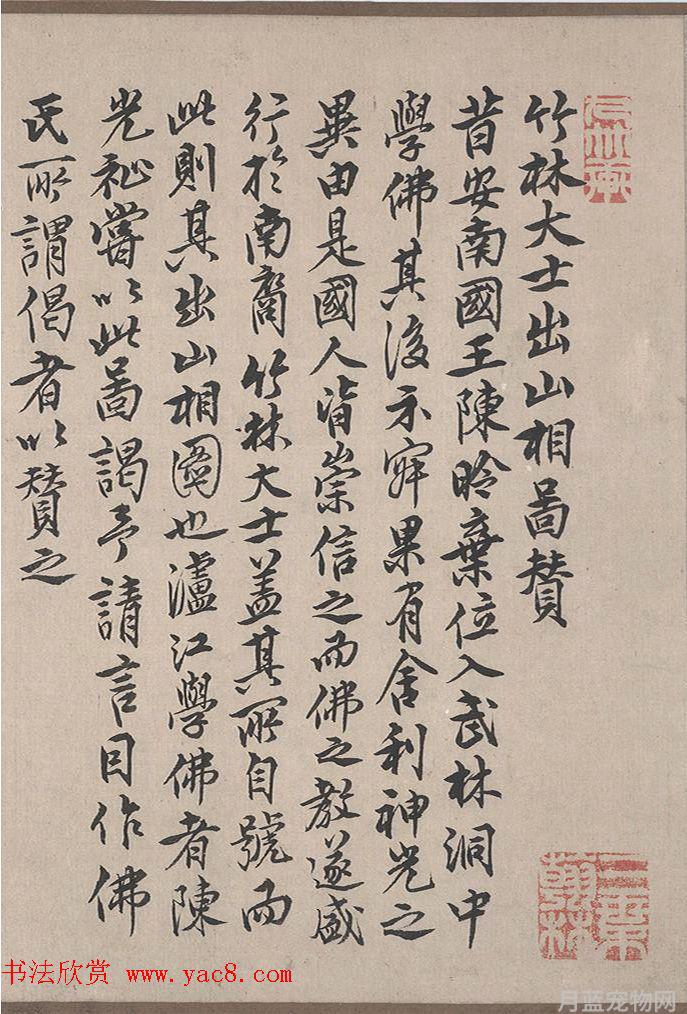 竹林大士出山相啚贊
昔安南國王陳昤棄位入武林洞中
學佛其後示寂果有舍利神光之
異由是國人皆崇信之而佛之教遂盛
行於南裔竹林大士盖其所自號而
此則其出山相圖也瀘江學佛者陳
光祉嘗以此啚謁予請言因作佛
氏所謂偈者以贊之
书法欣赏 www.yac8.com
月蓝宠物网